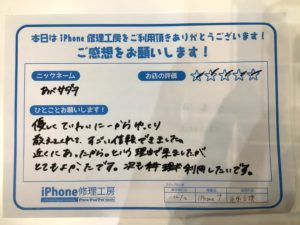 本日は iPhone 修理工房をご利用頂きありがとうございます!
ご感想をお願いします!
ニックネーム
お店の評価
☆☆☆☆☆
ひとことお願いします!
優しくていねいに一からゆっくり
教えてくれて、すごい信頼できました。
近くにあったから。という理由で来ましたが、
とてもよかったです。次も利用したいです。
iPhone修理工房
iPhone 7